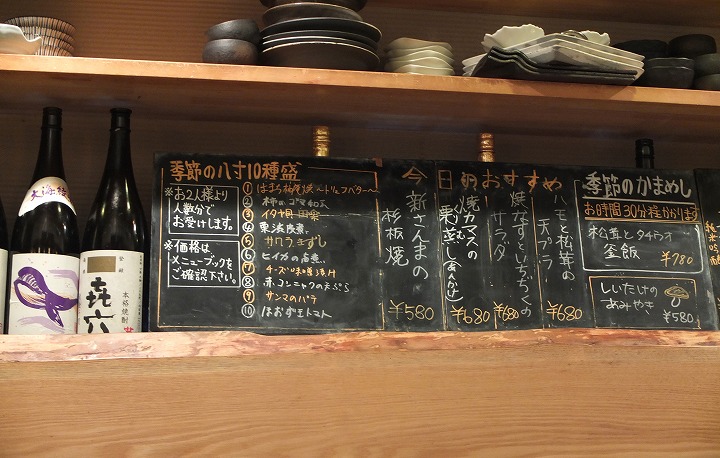 季節の八寸10種盛
※お2人様より
人数分で
お受けします。
※価格は
メニューブックを
ご確認下さい。
① はまち柚庵焼〜トリュフバター〜
② 柿のゴマ和え
③ イタヤ貝
④ 栗渋皮煮
⑤ サワラ
⑥ ヒイカの
⑦ チーズ味噌漬け
⑧ 赤コンニャクの天ぷら
⑨ サンマのパテ
⑩ ほおずきトマト
今日のおすすめ
新さんまの
杉板焼
¥580
焼カマスの
栗蒸し(あんかけ)
¥680
焼なすといちぢくの
サラダ
¥680
ハモと松茸の
天プラ
¥680
季節のかまめし
お時間30分程かかります
松茸とタチウオ
釜飯
¥780
しいたけの
あみやき
¥580
大海
㐂六
本格焼酎